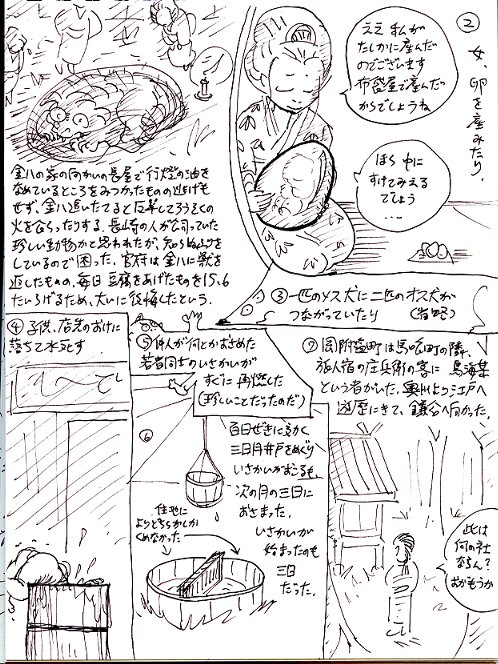 ②
女、卵を産みたり。
ええ 私が
たしかに産んだ
のでございます
布団屋で産んだ
からでしょうね
ほら 中に
すけてみえる
でしょう
…
金八の家の向かいの長屋で行燈の油を
なめているところをみつかったものの逃げも
せず、金八追いたてると反撃してろうそくの
火をくらったりする。長崎の人が飼っていた
珍しい動物かと思われたが、知らぬふりを
しているので困った。官府は金八に獣を
返したものの、毎日豆腐をあげたものを15、6
たいらげるため、大いに後悔したという。
①
③一匹のメス犬に二匹のオス犬が
つながっていたり
④子供、店先のおけに
落ちて水死す
⑤仲人が何とかおさめた
若者同士のいさかいが
すぐに再燃した
(珍しいことだったのだ)
⑥
百日ぜきに効く
三日月井戸をめぐり
いさかいがおこるも、
次の月の三日に
おさまった。
いさかいが
始まったのも
三日
だった。
住地に
よりどちらかしか
くめなかった
⑦同附塩町は馬喰町の隣、
旅人宿の庄兵衛の客に 鳥海某
という者がいた。奥州より江戸へ
遊歴にきて、鎌谷へ向かった。
此は
何の社
ならん?
おがもうか